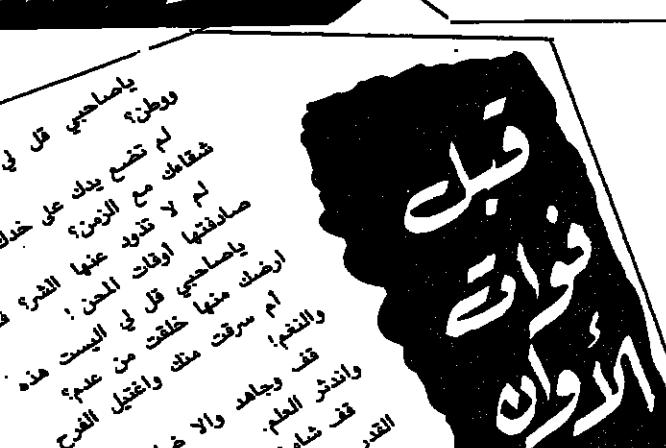 قبل
فوات
الأوان
ياصاحبي قل لي
ووطن؟
لم تضع يدك على خدك
شقاءك مع الزمن؟
لم لا تذود عنها الشر؟
صادفتها اوقات المحن؛
ياصاحبي قل لي اليست هذه
ارضك منها خلقت من عدم؟
أم سرقت منك واغتيل الفرح
والنغم؛
قف وجاهد والا
واندثر العلم.
قف
القدر